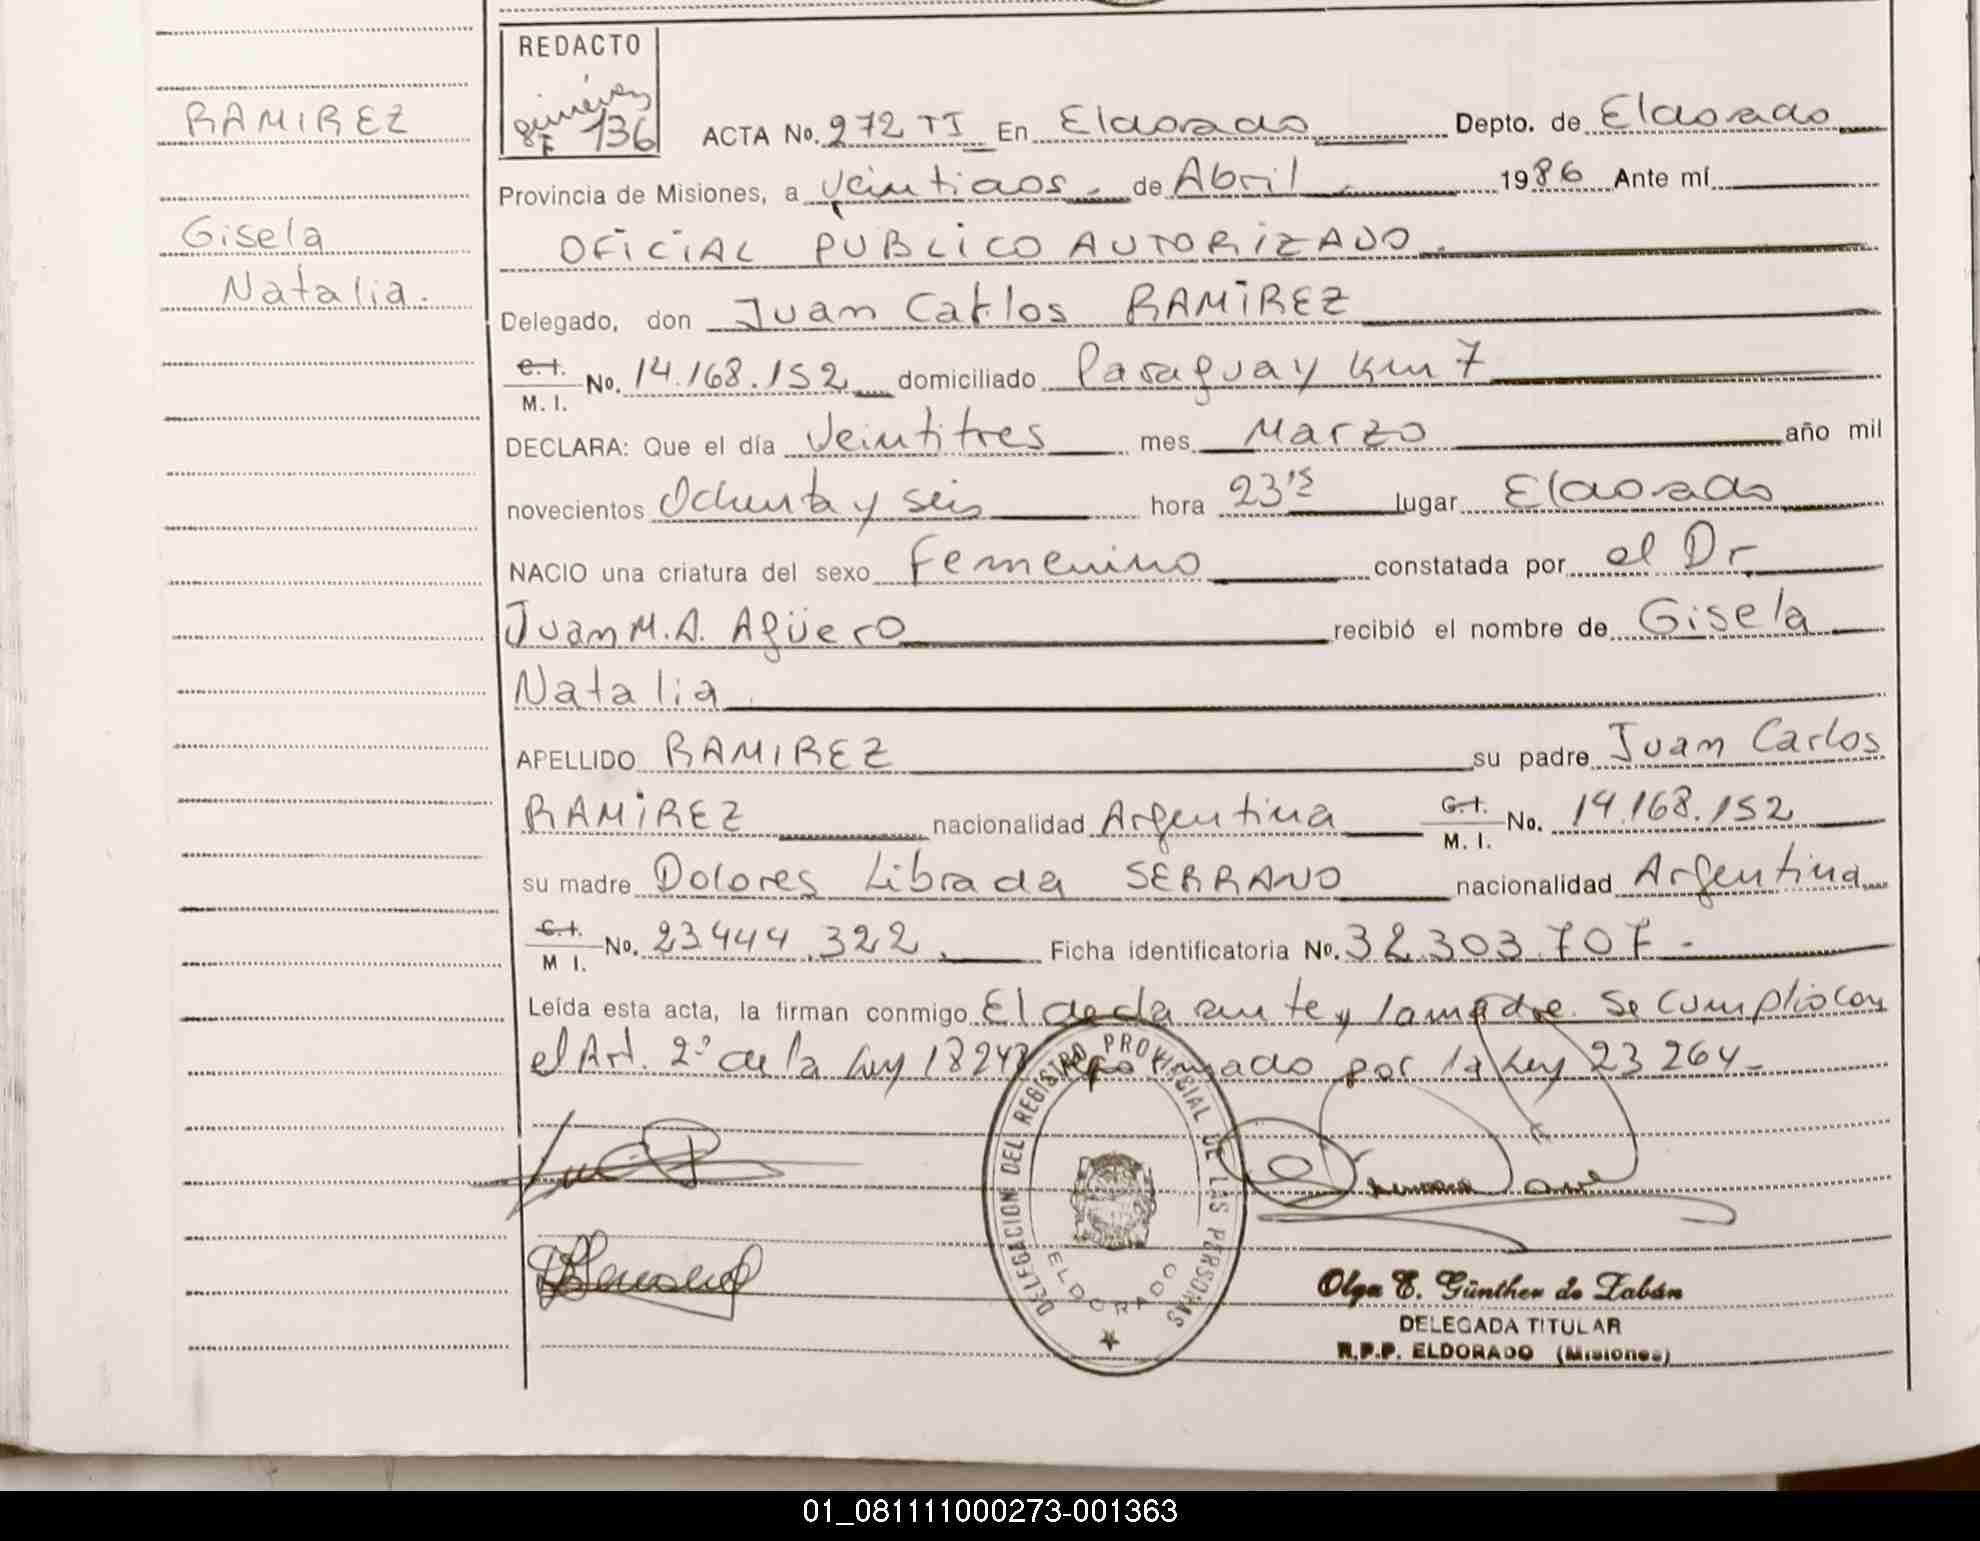 REDACTO
giménez
8F 136
RAMIREZ
Gisela
Natalia.
ACTA No. 272 TI En Eldorado Depto. de Eldorado
Provincia de Misiones, a veintidos. de Abril. 1986 Ante mí
OFICIAL PUBLICO AUTORIZADO.
Delegado, don Juan Carlos RAMIREZ
C.I. M. I. No. 14.168.152 domiciliado Paraguay km 7
DECLARA: Que el día Veintitres mes Marzo año mil
novecientos Ochenta y seis hora 23 15 lugar Eldorado
NACIO una criatura del sexo Femenino constatada por el Dr.
Juan M.A. Agüero recibió el nombre de Gisela
Natalia.
APELLIDO RAMIREZ su padre Juan Carlos
RAMIREZ nacionalidad Argentina C.I. M. I. No. 14.168.152
su madre Dolores Librada SERRANO nacionalidad Argentina
C.I. M I. No. 23444.322. Ficha identificatoria No. 32.303.707.-
Leída esta acta, la firman conmigo El declarante y la madre. Se cumplio con
el Art. 2º de la Ley 18248 por la Ley 23 264-
DELEGACION DEL REGISTRO PROVINCIAL DE LAS PERSONAS
ELDORADO
Olga E. Günther de Zabán
DELEGADA TITULAR
R.P.P. ELDORADO (Misiones)
01_081111000273-001363